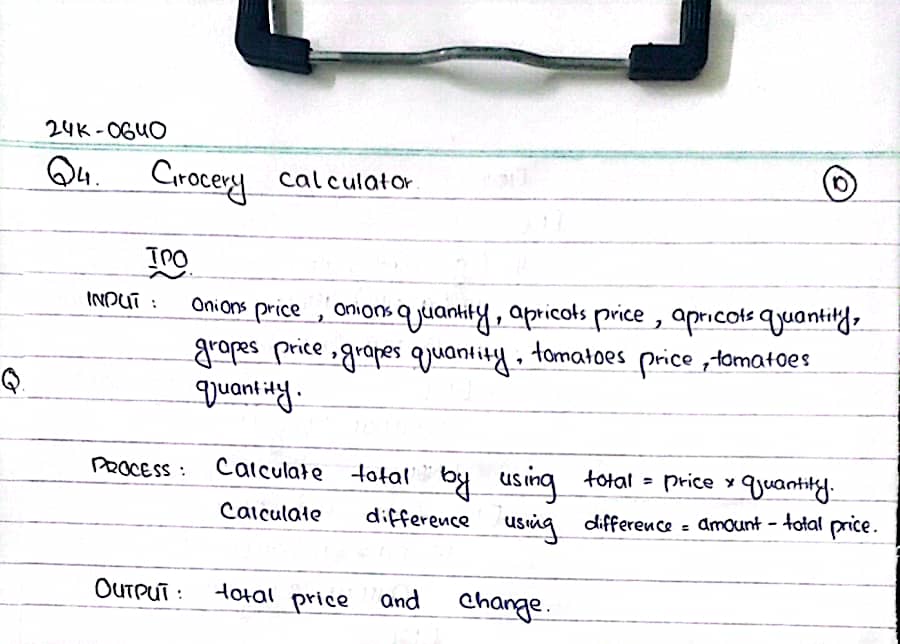 24K-0640
Q4. Grocery calculator. 10
IPO
INPUT : Onions price, onions quantity, apricots price, apricots quantity,
grapes price, grapes quantity, tomatoes price, tomatoes
Q.
quantity.
PROCESS : Calculate total by using total = price × quantity.
Calculate difference using difference = amount - total price.
OUTPUT : total price and change.